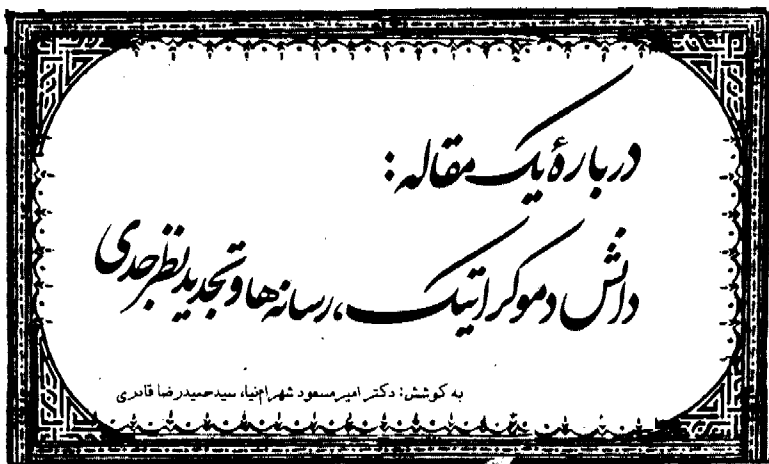 دربارهٔ یک مقاله:
دانش دموکراتیک، رسانه‌ها و تجدیدنظر جدی
به کوشش: دکتر امیرمسعود شهرام‌نیا، سیدحمیدرضا قادری